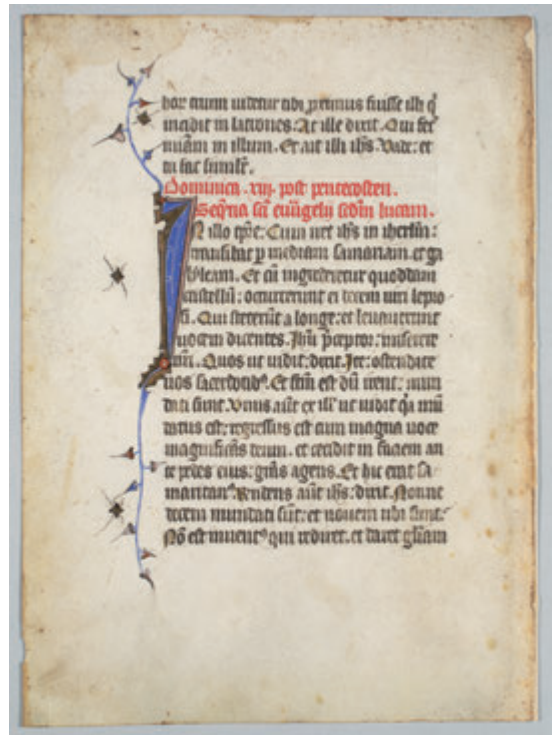 hor̄ trium uidetur tibi ꝓximus fuisse illi q̄
incidit in latrones. At ille dixit. Qui fec̄
miām in illum. Et ait illi ihs̄. Vade: et
tu fac similit̄.
Dominica .xiij. post pentecosten.
Seq̄ntia sc̄i euuāgelij scd̄m lucam.
IN illo tp̄re. Cum iret ihs̄ in iherlm̄:
transibat ꝑ mediam samariam. et ga
lyleam. Et cū ingrederetur quoddam
castellū: occurrerunt ei decem uiri lepro
si. Qui steterūt a longe: et leuauerunt
uocem dicentes. Jhū p̄ceptor: miserere
nr̄i. Quos ut uidit: dixit. Ite: ostendite
uos sacerdotibꝰ. Et fc̄m est dū irent: mun
dati sunt. Vnus aūt ex ill' ut uidit q̄a mū
datus est: regressus est cum magna uoce
magnificās deum. et cecidit in faciem an
te pedes eius: gr̄as agens. Et hic erat sa
maritanꝰ. Rn̄dens aūt ihs̄: dixit. Nonne
decem mundati sūt: et nouem ubi sunt.
Nō est inuentꝰ qui rediret. et daret gl̄iam